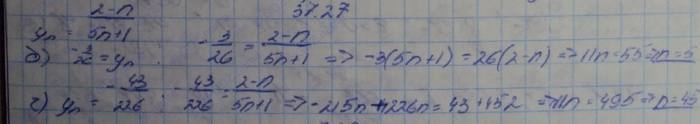 37.27
yₙ = (2-n)/(5n+1)
б) -3/26 = yₙ . -3/26 = (2-n)/(5n+1) => -3(5n+1) = 26(2-n) => 11n = 55 => n = 5
г) yₙ = -43/226 . -43/226 = (2-n)/(5n+1) => -215n + 226n = 43 + 452 => 11n = 495 => n = 45